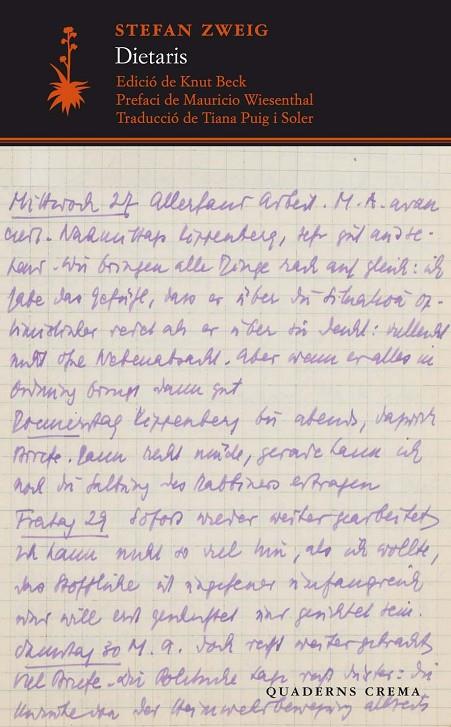 STEFAN ZWEIG
Dietaris
Edició de Knut Beck
Prefaci de Mauricio Wiesenthal
Traducció de Tiana Puig i Soler
Mittwoch 27 Allerhand Arbeit. M. A. avan
ciert. Nachmittags Kippenberg, sehr gut ande-
Wir bringen alle Dinge rasch auf gleich: ich
habe das Gefühl, dass er über die Situation op-
timistischer als er über sie denkt: vielleicht
nicht ohne Nebenabsicht. Aber wenn er alles in
Ordnung bringt dann gut
Donnerstag Kippenberg bis abends, dazwisch
Briefe. Dann recht müde, gerade kann ich
noch die des Rabbiners ertragen
Freitag 29 Sofort wieder weitergearbeitet
Ich kann nicht so viel hin, als ich wollte,
das Stoffliche ist ungeheuer umfangreich
und will erst und gesichtet sein.
Samstag 30 M. A. doch recht weitergebracht
Viel Briefe. Die Politische Lage recht düster: die
von der Heimwehrbewegung
QUADERNS CREMA